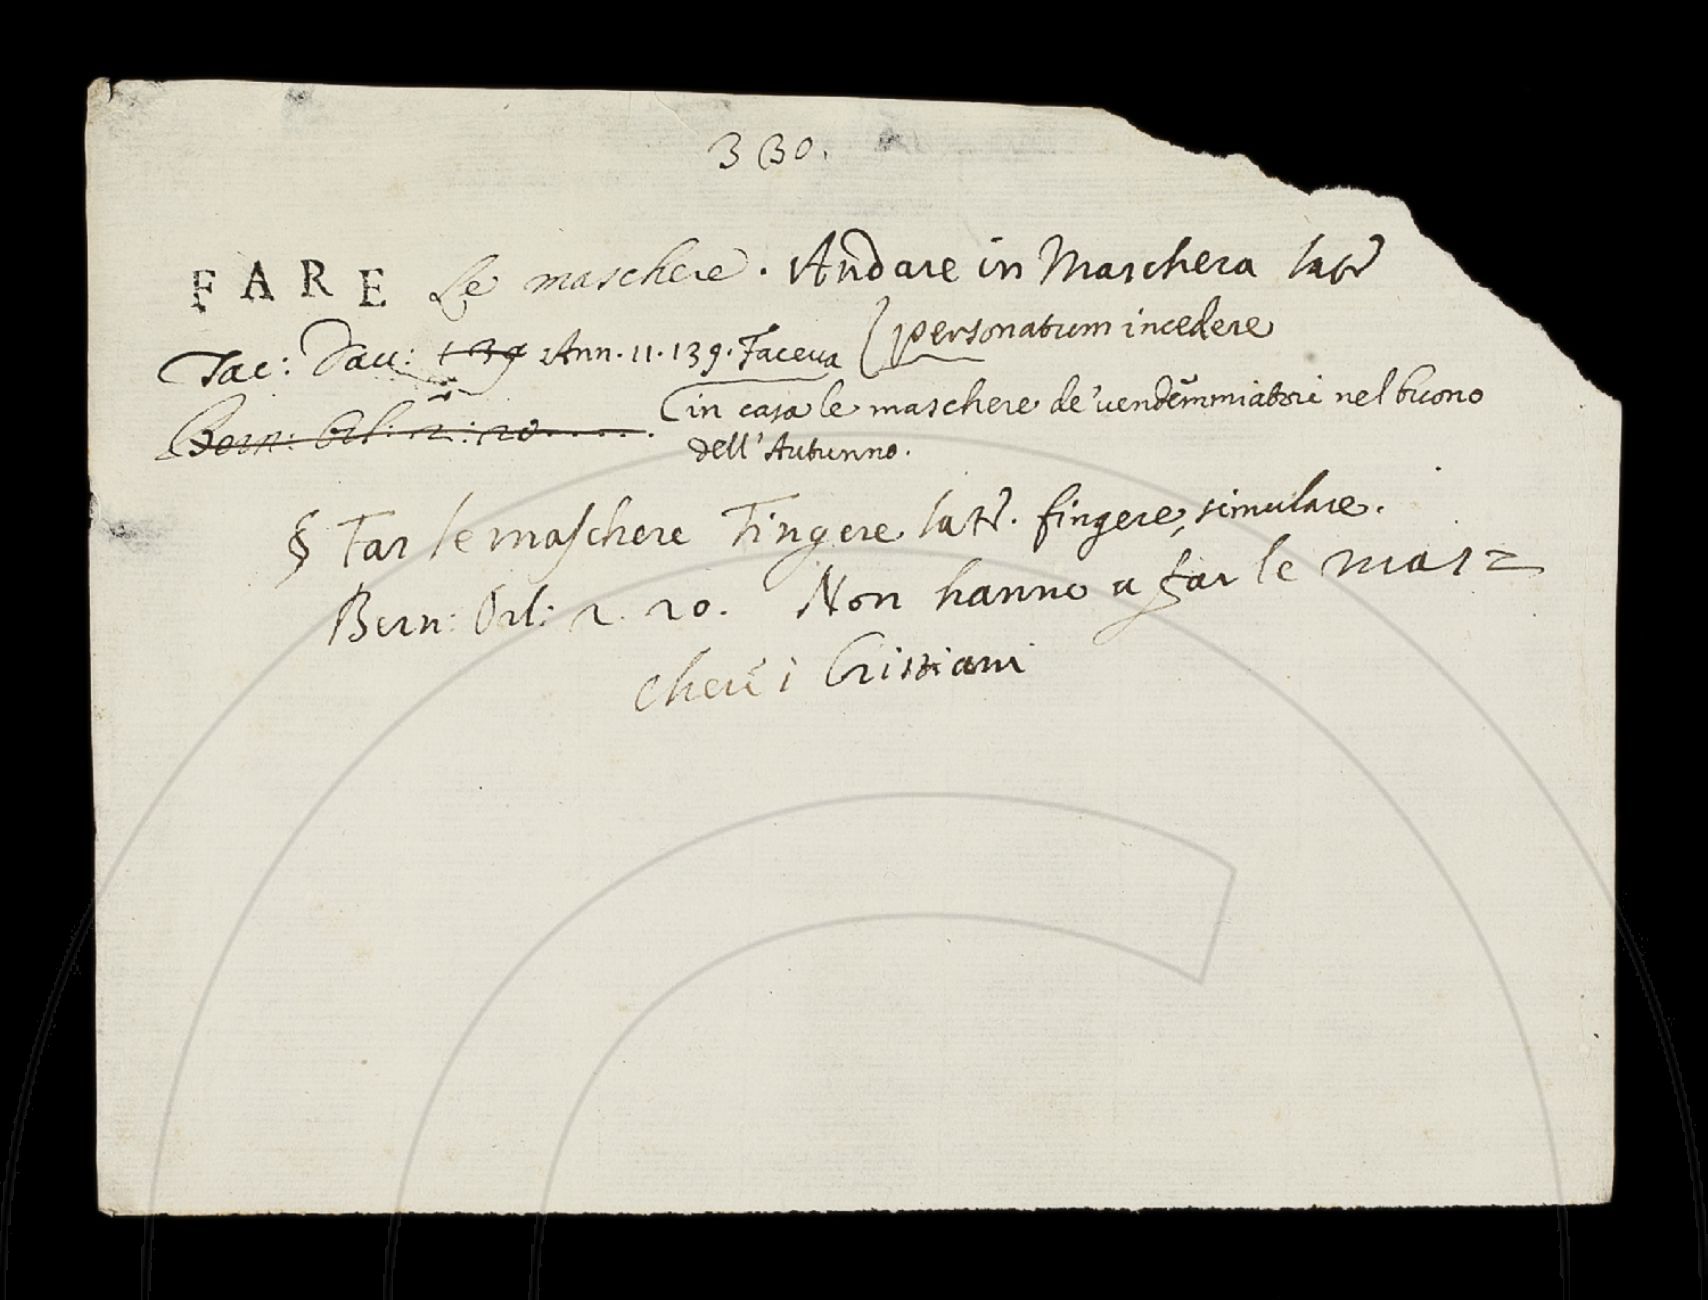 330.
FARE Le maschere. Andare in Maschera lat̃
personatum incedere
Tac: Dav: 139 Ann. 11. 139. Faceva
in casa le maschere de' vendem̃miatori nel buono
Bern: Orl: 2: 20......
dell' Autunno.
§ Far le maschere Fingere lat̃. fingere, simulare.
Bern: Orl: 2. 20. Non hanno a far le mas=
chere i Cristiani